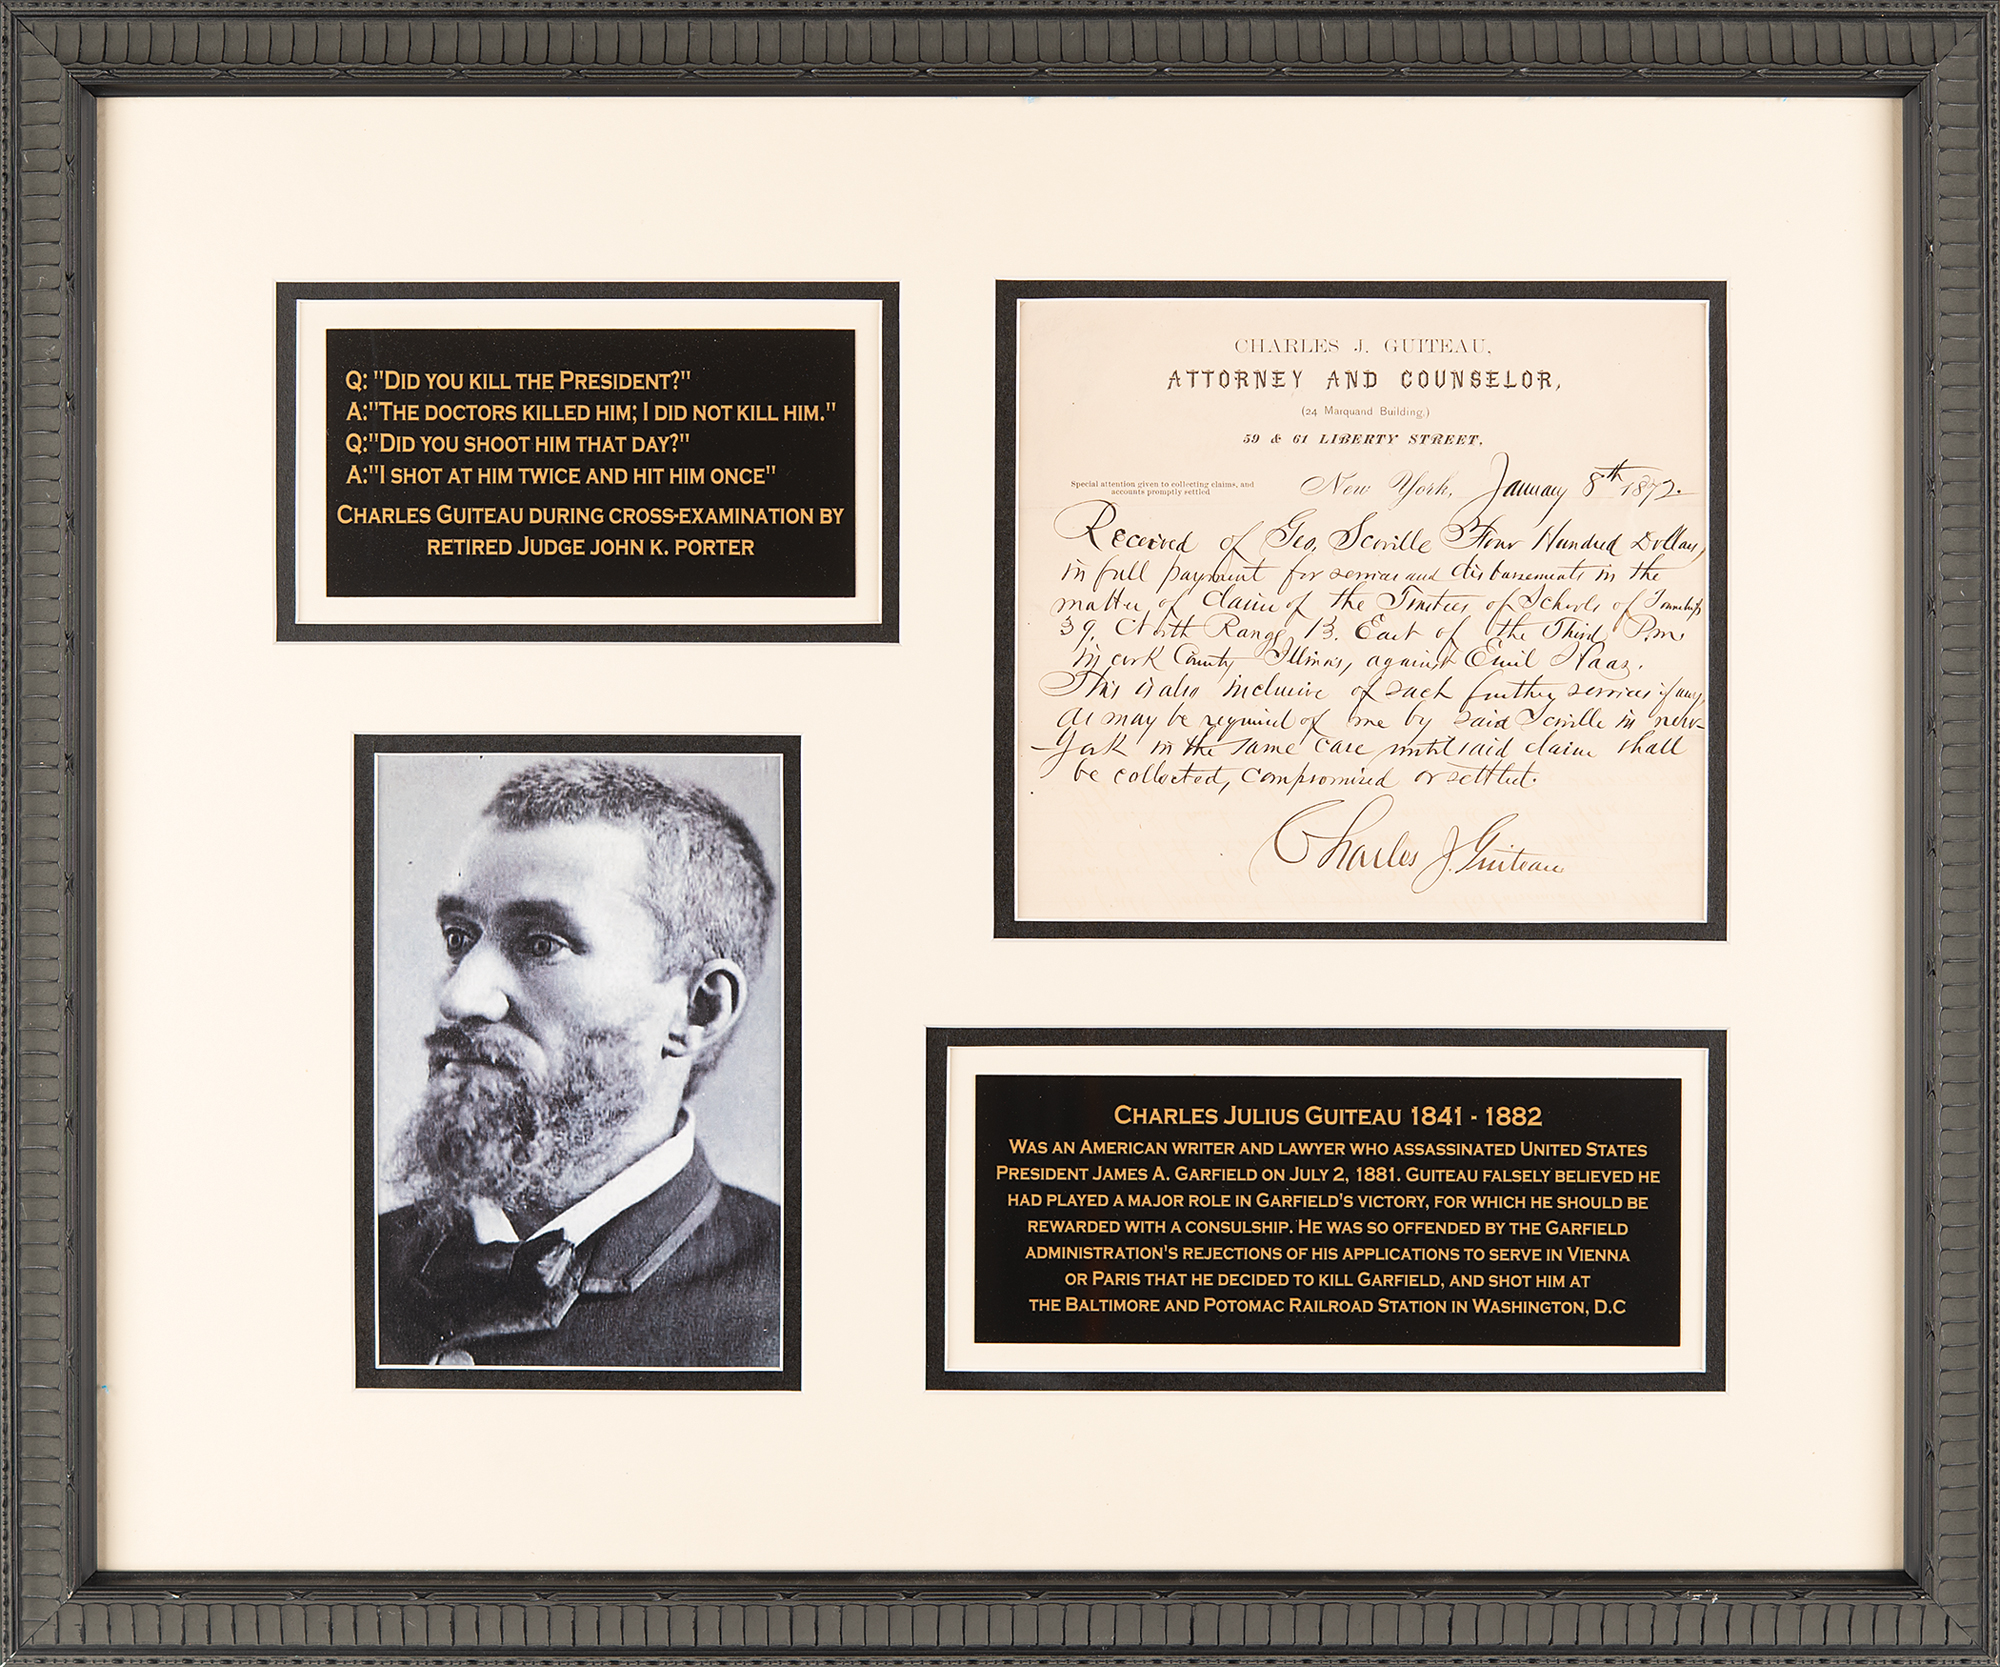 Q: "DID YOU KILL THE PRESIDENT?"
A:"THE DOCTORS KILLED HIM; I DID NOT KILL HIM."
Q:"DID YOU SHOOT HIM THAT DAY?"
A:"I SHOT AT HIM TWICE AND HIT HIM ONCE"
CHARLES GUITEAU DURING CROSS-EXAMINATION BY
RETIRED JUDGE JOHN K. PORTER
CHARLES J. GUITEAU,
ATTORNEY AND COUNSELOR,
(24 Marquand Building.)
59 & 61 LIBERTY STREET,
Special attention given to collecting claims, and
accounts promptly settled
New York, January 8th 1872.
Received of Geo. Scoville Four Hundred Dollars,
in full payment for services and disbursements in the
matter of claim of the Trustees of Schools of Township
39. North Range 13. East of the Third P.m.
in cook County Illinois, against Emil Haas.
This is also inclusive of such further services if any,
as may be required of me by said Scoville in new-
York in the same case until said claim shall
be collected, compromised or settled.
Charles J. Guiteau
CHARLES JULIUS GUITEAU 1841 - 1882
WAS AN AMERICAN WRITER AND LAWYER WHO ASSASSINATED UNITED STATES
PRESIDENT JAMES A. GARFIELD ON JULY 2, 1881. GUITEAU FALSELY BELIEVED HE
HAD PLAYED A MAJOR ROLE IN GARFIELD'S VICTORY, FOR WHICH HE SHOULD BE
REWARDED WITH A CONSULSHIP. HE WAS SO OFFENDED BY THE GARFIELD
ADMINISTRATION'S REJECTIONS OF HIS APPLICATIONS TO SERVE IN VIENNA
OR PARIS THAT HE DECIDED TO KILL GARFIELD, AND SHOT HIM AT
THE BALTIMORE AND POTOMAC RAILROAD STATION IN WASHINGTON, D.C